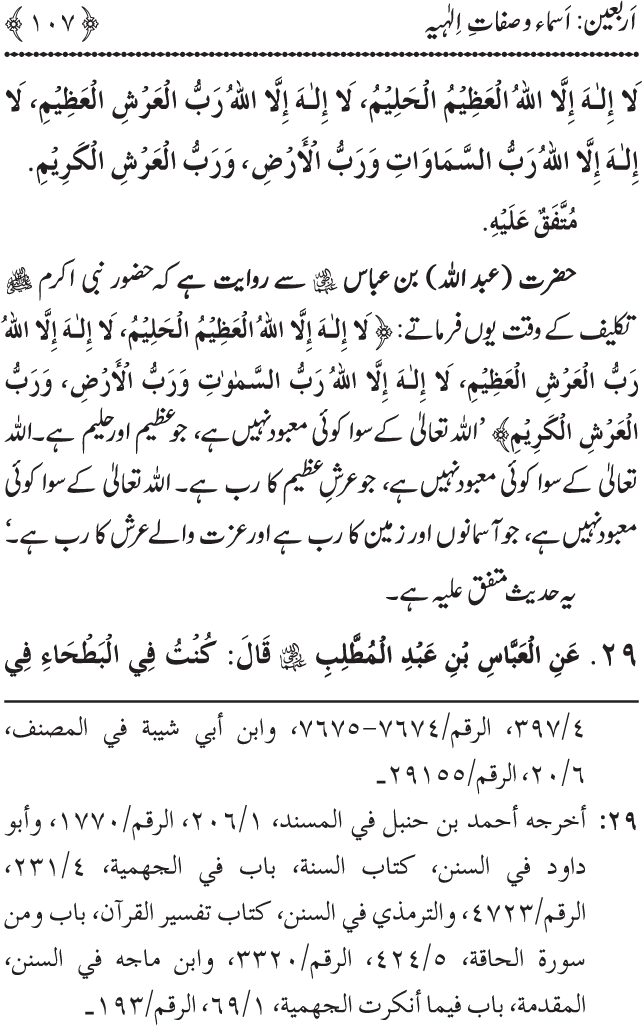 اَربعین: اَسماء و صفاتِ اِلٰہیہ ﴿۱۰۷﴾
لَا إِلٰـهَ إِلَّا اللهُ الْعَظِيْمُ الْحَلِيْمُ، لَا إِلٰـهَ إِلَّا اللهُ رَبُّ الْعَرْشِ الْعَظِيْمِ، لَا
إِلٰـهَ إِلَّا اللهُ رَبُّ السَّمَاوَاتِ وَرَبُّ الْأَرْضِ، وَرَبُّ الْعَرْشِ الْكَرِيْمِ.
مُتَّفَقٌ عَلَيْهِ.
حضرت (عبد اللہ) بن عباس رضی اللہ عنہما سے روایت ہے کہ حضور نبی اکرم ﷺ
تکلیف کے وقت یوں فرماتے: ﴿لَا إِلٰـهَ إِلَّا اللهُ الْعَظِيْمُ الْحَلِيْمُ، لَا إِلٰـهَ إِلَّا اللهُ
رَبُّ الْعَرْشِ الْعَظِيْمِ، لَا إِلٰـهَ إِلَّا اللهُ رَبُّ السَّمٰوٰتِ وَرَبُّ الْأَرْضِ، وَرَبُّ
الْعَرْشِ الْكَرِيْمِ﴾ ’اللہ تعالیٰ کے سوا کوئی معبود نہیں ہے، جو عظیم اور حلیم ہے۔ اللہ
تعالیٰ کے سوا کوئی معبود نہیں ہے، جو عرشِ عظیم کا رب ہے۔ اللہ تعالیٰ کے سوا کوئی
معبود نہیں ہے، جو آسمانوں اور زمین کا رب ہے اور عزت والے عرش کا رب ہے۔‘
یہ حدیث متفق علیہ ہے۔
٢٩. عَنِ الْعَبَّاسِ بْنِ عَبْدِ الْمُطَّلِبِ قَالَ: كُنْتُ فِي الْبَطْحَاءِ فِي
٣٩٧/٤، الرقم/٧٦٧٤-٧٦٧٥، وابن أبي شيبة في المصنف،
٢٠/٦، الرقم/٢٩١٥٥ـ
٢٩: أخرجه أحمد بن حنبل في المسند، ٢٠٦/١، الرقم/١٧٧٠، وأبو
داود في السنن، كتاب السنة، باب في الجهمية، ٢٣١/٤،
الرقم/٤٧٢٣، والترمذي في السنن، كتاب تفسير القرآن، باب ومن
سورة الحاقة، ٤٢٤/٥، الرقم/٣٣٢٠، وابن ماجه في السنن،
المقدمة، باب فيما أنكرت الجهمية، ٦٩/١، الرقم/١٩٣ـ